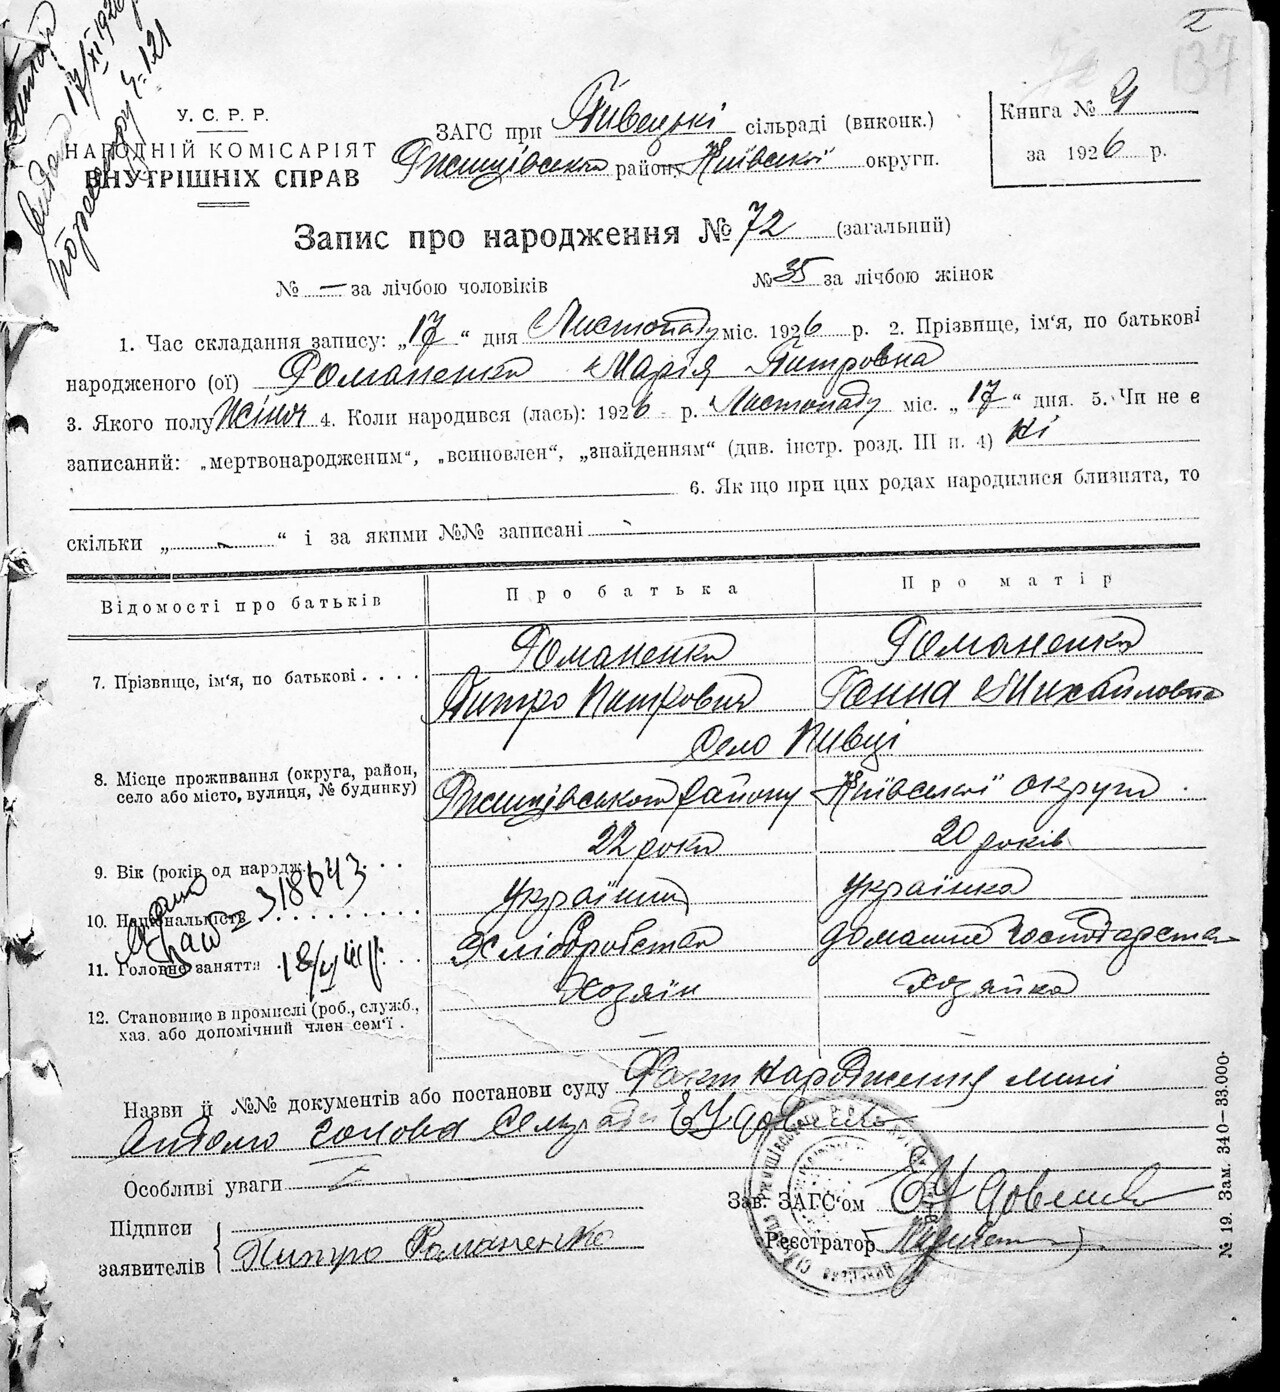 2
137
видано 17/XI 1926
У. С. Р. Р.
НАРОДНІЙ КОМІСАРІЯТ
ВНУТРІШНІХ СПРАВ
ЗАГС при Пивецькі сільраді (виконк.)
Ржищівського район, Київської округи.
Книга № 4
за 1926 р.
Запис про народження № 72 (загальний)
№ – за лічбою чоловіків № 35 за лічбою жінок
1. Час складання запису: „17“ дня Листопаду міс. 1926 р. 2. Прізвище, ім‘я, по батькові
народженого (ої) Романенко Марія Питровна
3. Якого полу Жіноч 4. Коли народився (лась): 1926 р. Листопаду міс. „17“ дня. 5. Чи не є
записаний: „мертвонародженим“, „всиновлен“, „знайденням“ (див. інстр. розд. III п. 4) Ні
6. Як що при цих родах народилися близнята, то
скільки „ - “ і за якими №№ записані -
Відомості про батьків Про батька Про матір
Романенко Романенко
7. Прізвище, ім‘я, по батькові . . . . Питро Питрович Ганна Михайловна
Село Пивці
8. Місце проживання (округа, район,
село або місто, вулиця, № будинку) Ржищівського району Київської округи
22 роки 20 років
9. Вік (років од народж. . . .
318643
українец українка
10. Національність . . . . . . . . .
Хліборобство домашнє господарство
11. Головне заняття
Хозяїн Хозяйка
12. Становище в промислі (роб., служб.,
хаз. або допомічний член сем‘ї .
Назви й №№ документів або постанови суду Факт народження мині
відомо голова Сільради
Особливі уваги –
Зав. ЗАГС‘ом
Підписи
заявителів Питро Романенко
Реєстратор
№ 19. Зам. 340—33.000.